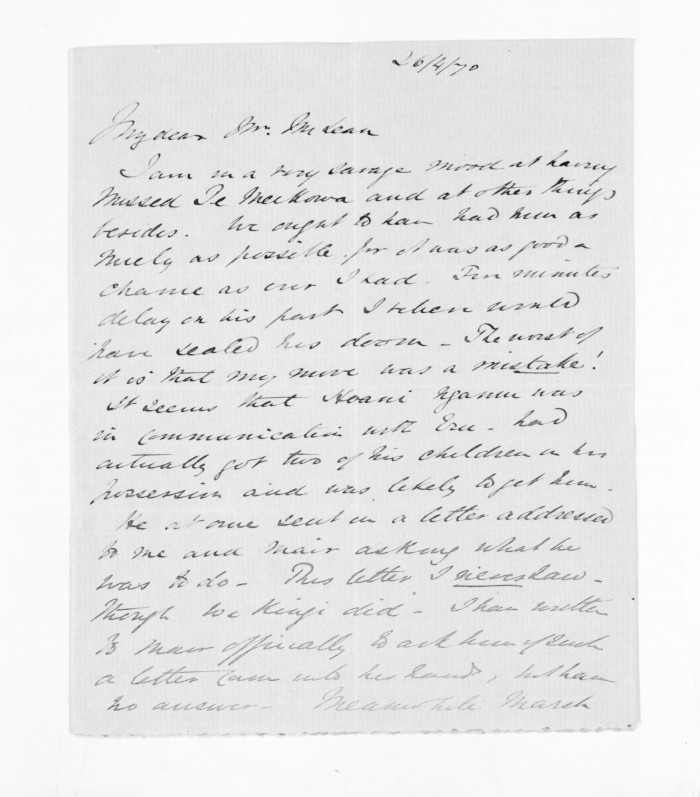 26/4/70
My dear Mr. McLean
I am in a very savage mood at having
missed Te Meekowa and at other things
besides. We ought to have had him as
nicely as possible for it was as good a
chance as ever I had. Five minutes
delay on his part I believe would
have sealed his doom - The worst of
it is that my move was a mistake!
It seems that Hoani Ngamu was
in communication with Eru - had
actually got two of his children in his
possession and was likely to get him.
He at once sent in a letter addressed
to me and Mair asking what he
was to do - This letter I never saw -
though We Kingi did - I have written
to Mair officially to ask him if such
a letter came into his hands, but have
no answer - Meanwhile March